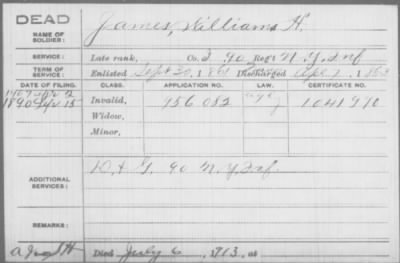 DEAD
NAME OF SOLDIER: James, Williams H.
SERVICE: Late rank, Co. I, 90 Reg't N.Y. Inf
TERM OF SERVICE: Enlisted Sept 30, 1861 Discharged Apr 1, 186
DATE OF FILING. CLASS. APPLICATION NO. LAW. CERTIFICATE NO.
1890 15 Invalid, 156 082 1041 970
Widow,
Minor,
ADDITIONAL SERVICES: D & G. 90 N.Y. Inf.
REMARKS:
Died July 6, 1913, at